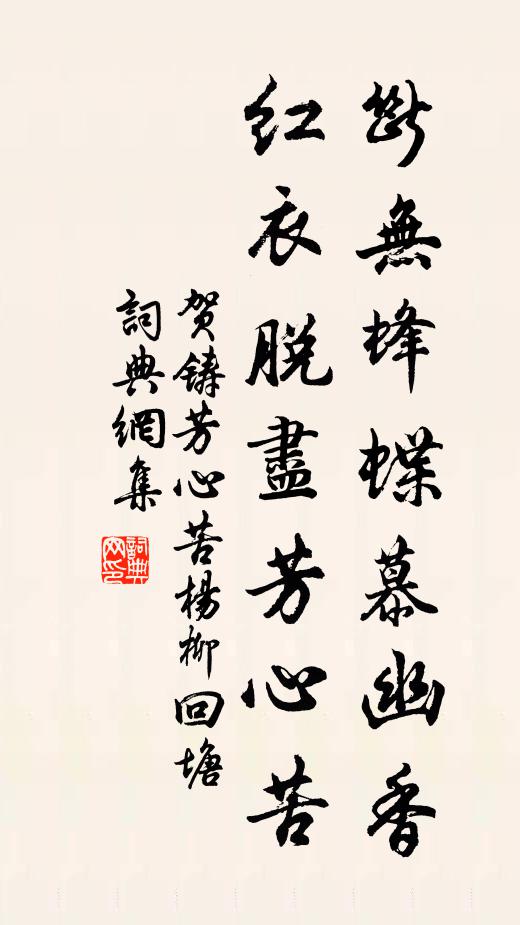 斷無蜂蝶慕幽香
紅衣脫盡芳心苦
賀鑄芳心苦楊柳回塘
詞典網集
詞典网印